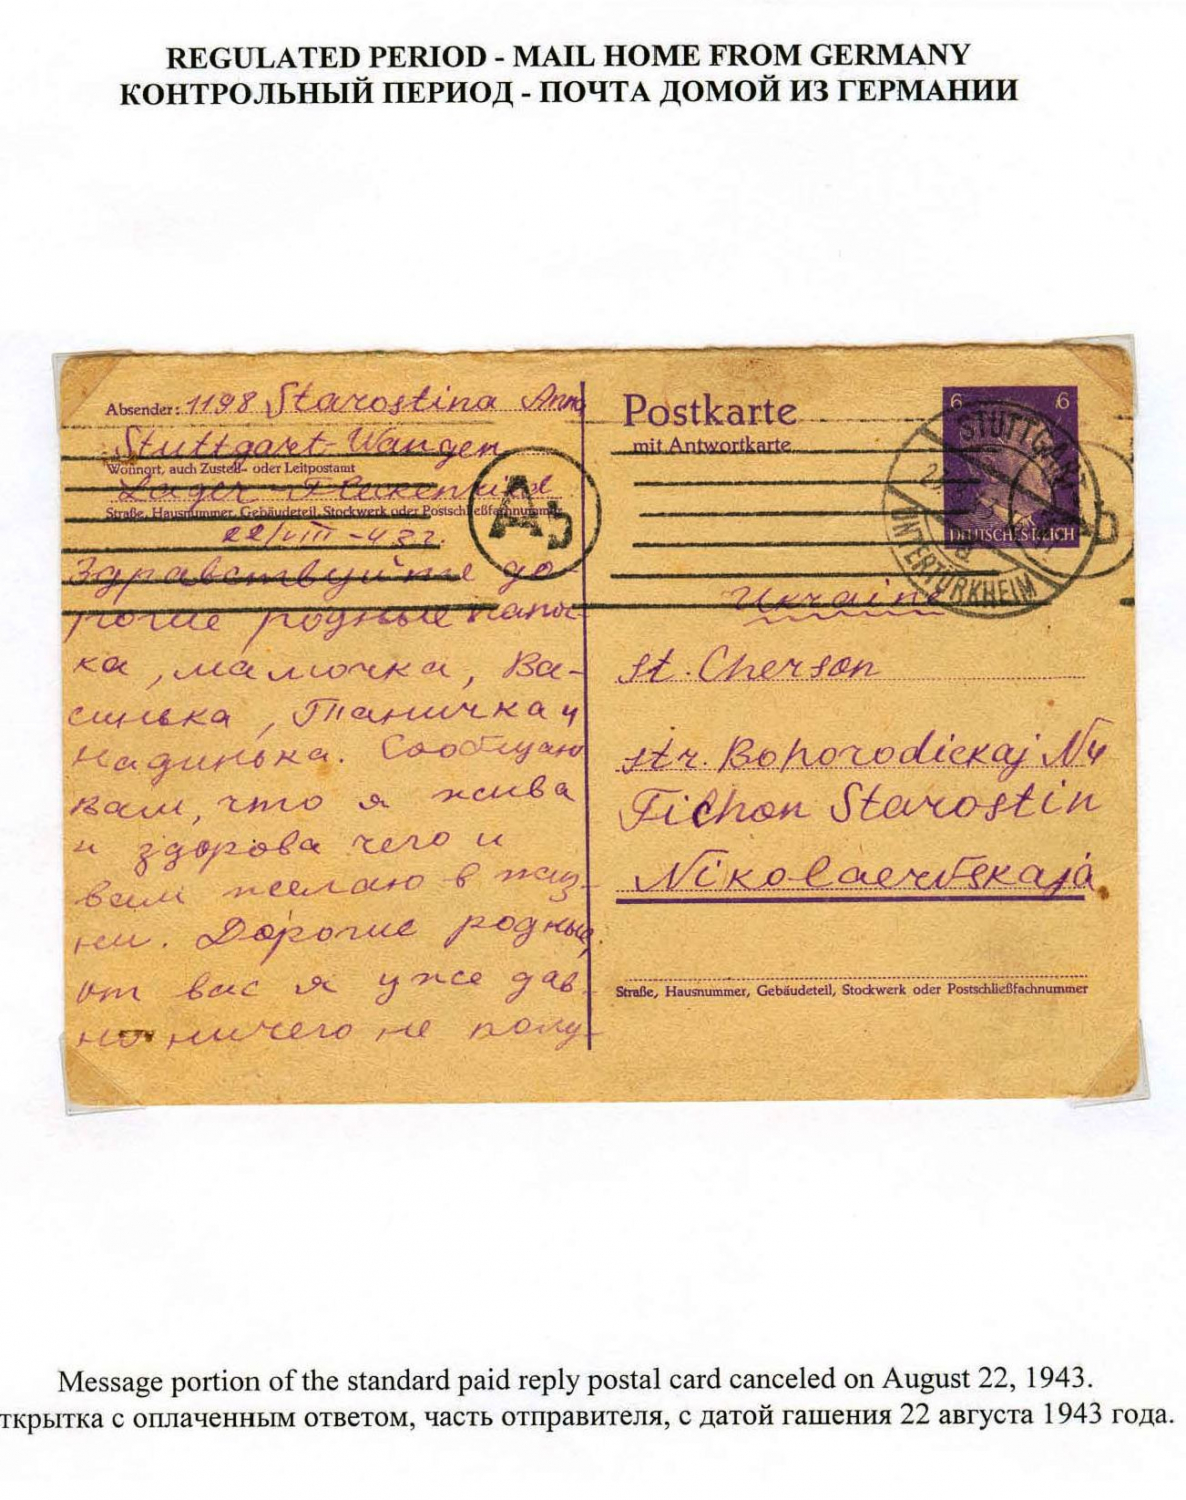 REGULATED PERIOD - MAIL HOME FROM GERMANY
КОНТРОЛЬНЫЙ ПЕРИОД - ПОЧТА ДОМОЙ ИЗ ГЕРМАНИИ
Absender: 1198 Starostina Anna
Stuttgart-Wangen
Wohnort, auch Zustell- oder Leitpostamt
Lager-
Straße, Hausnummer, Gebäudeteil, Stockwerk oder Postschließfachnummer
22/VIII-43г.
Здравствуйте до
рогие родные папоч-
ка, мамочка, Ва-
синька, Таничка и
Надинька. Сообщаю
вам, что я жива
и здорова чего и
вам желаю в жиз-
ни. Дорогие родные,
от вас я уже дав-
но ничего не полу-
A
b
Postkarte
mit Antwortkarte
6 6
DEUTSCHES REICH
STUTTGART
UNTERTÜRKHEIM
b
Ukraine
st. Cherson
str. Bohorodickaj N4
Tichon Starostin
Straße, Hausnummer, Gebäudeteil, Stockwerk oder Postschließfachnummer
Message portion of the standard paid reply postal card canceled on August 22, 1943.
ткрытка с оплаченным ответом, часть отправителя, с датой гашения 22 августа 1943 года.